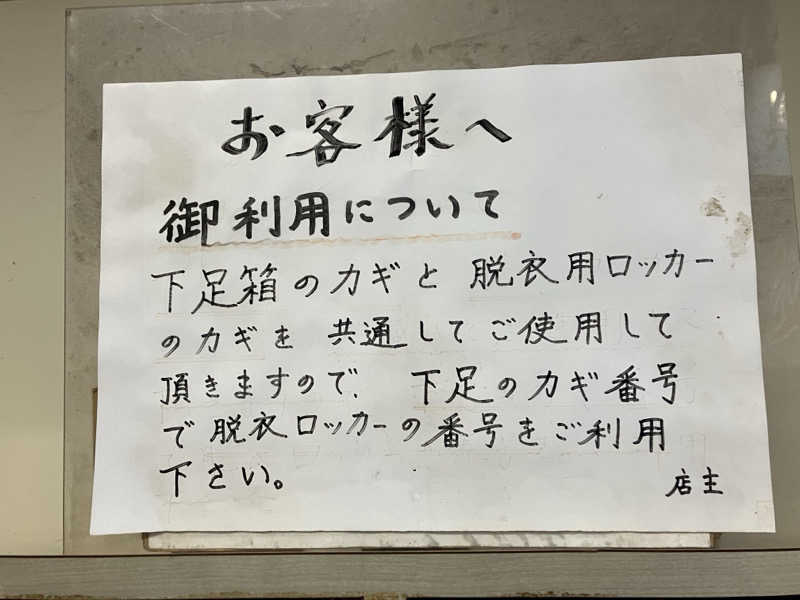 お客様へ
御利用について
下足箱のカギと 脱衣用ロッカー
のカギを 共通してご使用して
頂きますので、 下足のカギ番号
で脱衣ロッカーの番号をご利用
下さい。
店主